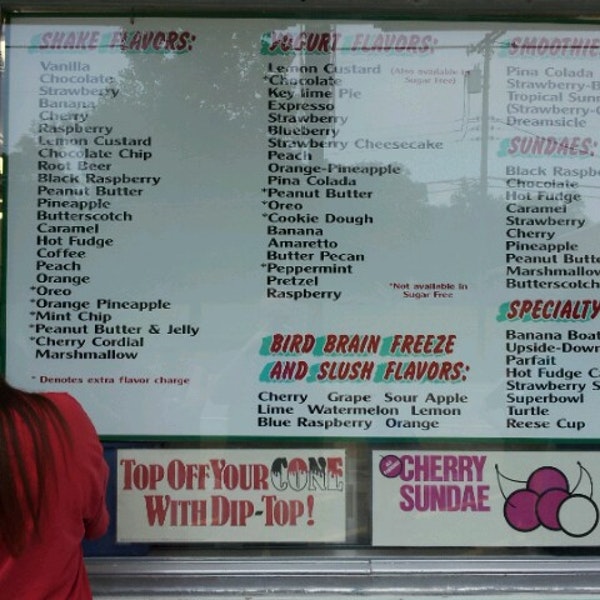 SHAKE FLAVORS:
Vanilla
Chocolate
Strawberry
Banana
Cherry
Raspberry
Lemon Custard
Chocolate Chip
Root Beer
Black Raspberry
Peanut Butter
Pineapple
Butterscotch
Caramel
Hot Fudge
Coffee
Peach
Orange
*Oreo
*Orange Pineapple
*Mint Chip
*Peanut Butter & Jelly
*Cherry Cordial
Marshmallow
* Denotes extra flavor charge
YOGURT FLAVORS:
Lemon Custard (Also available in
*Chocolate Sugar Free)
Key lime Pie
Expresso
Strawberry
Blueberry
Strawberry Cheesecake
Peach
Orange-Pineapple
Pina Colada
*Peanut Butter
*Oreo
*Cookie Dough
Banana
Amaretto
Butter Pecan
*Peppermint
Pretzel *Not available in
Raspberry Sugar Free
BIRD BRAIN FREEZE
AND SLUSH FLAVORS:
Cherry Grape Sour Apple
Lime Watermelon Lemon
Blue Raspberry Orange
SMOOTHIE
Pina Colada
Strawberry-B
Tropical Sunr
(Strawberry-O
Dreamsicle
SUNDAES:
Black Raspb
Chocolate
Hot Fudge
Caramel
Strawberry
Cherry
Pineapple
Peanut Butt
Marshmallow
Butterscotch
SPECIALTY
Banana Boat
Upside-Down
Parfait
Hot Fudge Ca
Strawberry S
Superbowl
Turtle
Reese Cup
TOP OFF YOUR CONE
WITH DIP-TOP!
CHERRY
SUNDAE